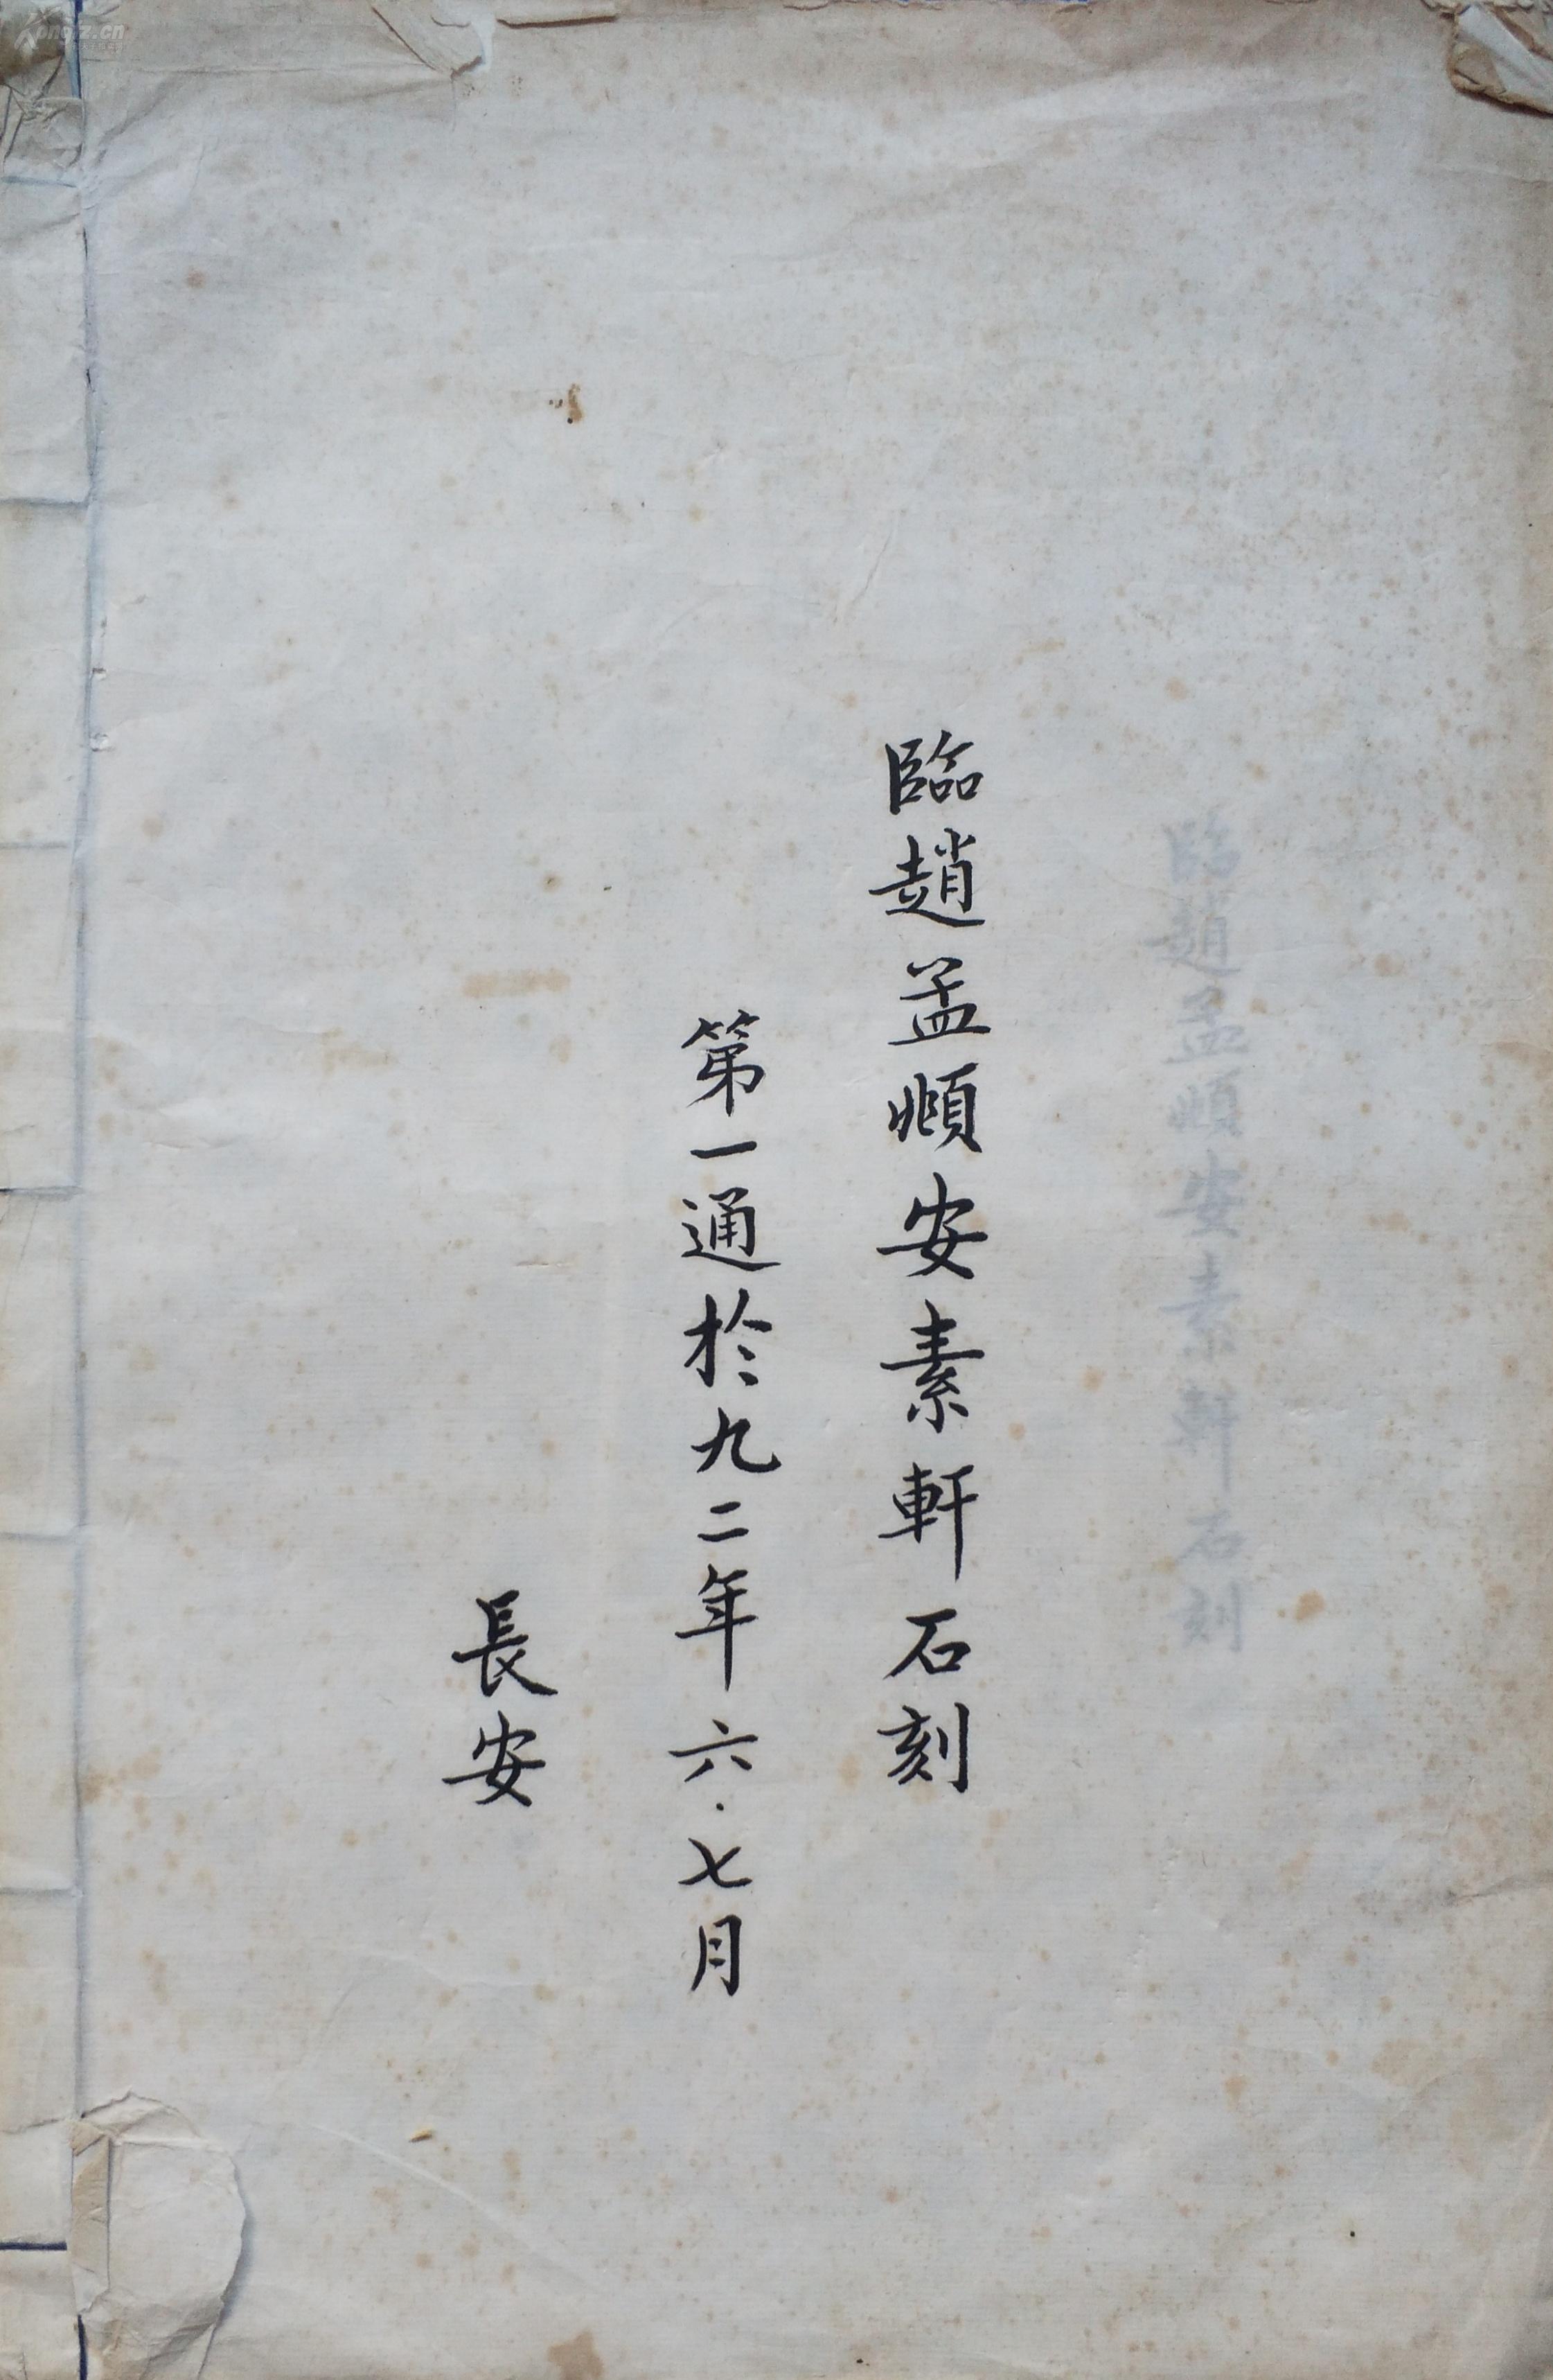 臨趙孟頫安素軒石刻
臨趙孟頫安素軒石刻
第一通於九二年六·七月
長安